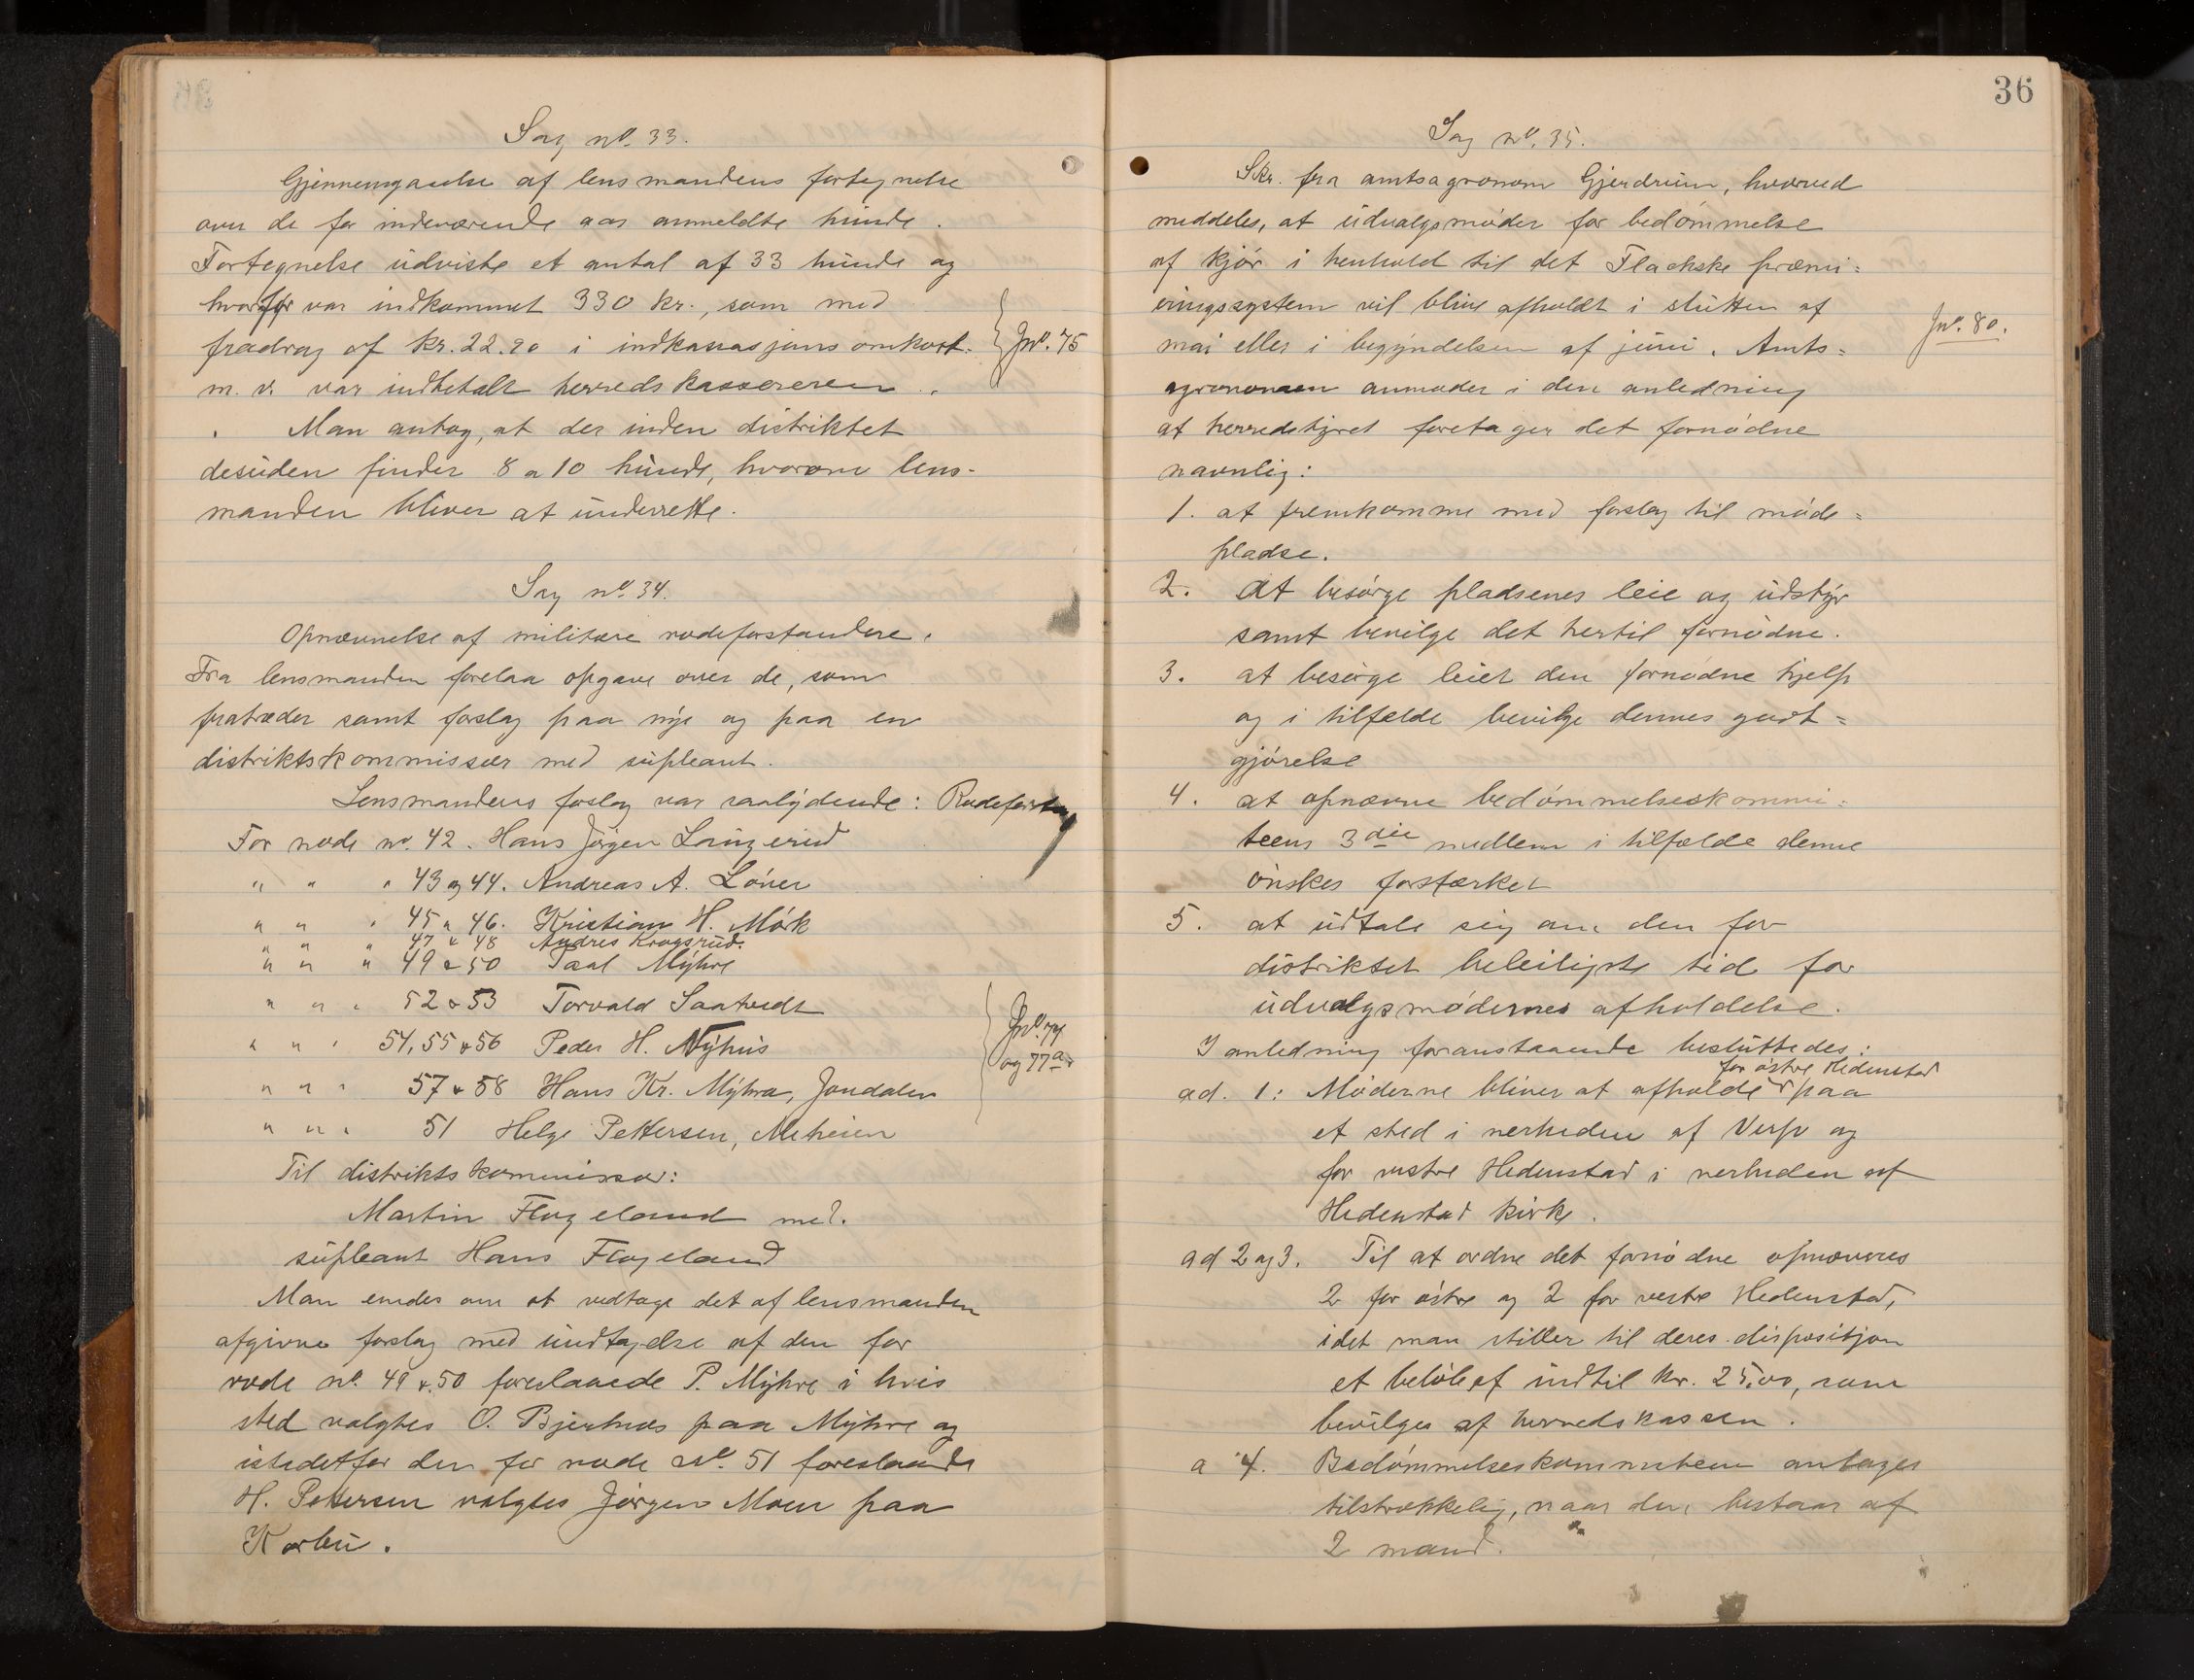 Sag nº. 33.
Gjennemgaaelse af lensmandens fortegnelse
over de for indeværende aar anmeldte hunde.
Fortegnelse udviste et antal af 33 hunde og
hvorfor var indkommet 330 kr., som med
fradrag af kr. 22.20 i indkassasjons omkost.
Jnº. 75
m. v. var indbetalt herredskassereren.
Man antog, at der inden distriktet
desuden finder 8 a 10 hunde, hvorom lens-
manden bliver at underrette.
Sag nº. 34.
Opnævnelse af militære rodeforstandere.
Fra lensmanden forelaa opgave over de, som
fratræder samt forslag paa nye og paa en
distriktskommissær med supleant.
Lensmandens forslag var saalydende: Rodeforstan
For rode nº. 42. Hans Jörgen Langerud
" " " 43 og 44. Andreas A. Löver
" " " 45 & 46. Kristian H. Mörk
" " " 47 & 48 Andres Krogsrud.
" " " 49 & 50 Paal Myhre
" " " 52 & 53 Torvald Saatvedt
" " " 54, 55 & 56 Peder H. Nyhus
Jnº. 77
og 77a.
" " " 57 & 58 Hans Kr. Myhra, Jondalen
" " " 51 Helge Pettersen, Meheien
Til distriktskommissær:
Martin Flageland med.
supleant Hans Flageland
Man enedes om at vedtage det af lensmanden
afgivne forslag med undtagelse af den for
rode nº. 49 & 50 foreslaaede P. Myhre i hvis
sted valgtes O. Bjerknes paa Myhre og
istedetfor den for rode nº. 51 foreslaaede
H. Pettersen valgtes Jörgen Moen paa
Korbu.
36
Sag nº. 35.
Skr. fra amtsagronom Gjerdrum, hvorved
meddeles, at udvalgsmøder for bedömmelse
af kjör i henhold til det Flackske præmi=
eringssystem vil blive afholdt i slutten af
Jnº. 80.
mai eller i begyndelsen af juni. Amts=
agronomen anmoder i den anledning
at herredstyret foretager det fornödne
navnlig:
1. at fremkomme med forslag til møde=
pladse.
2. At besörge pladsenes leie og udstyr
samt bevilge det hertil fornödne.
3. at besörge leiet den fornödne hjelp
og i tilfælde bevilge dennes godt=
gjörelse
4. at opnævne bedömmelseskommi=
teens 3die medlem i tilfælde denne
önskes forstærket
5. at udtale sig om den for
distriktet beleiligste tid for
udvalgsmödernes afholdelse.
I anledning foranstaaende besluttedes:
for östre Hedenstad
ad. 1: Møderne bliver at afholde paa
et sted i nerheden af Verp og
for vestre Hedenstad i nerheden af
Hedenstad kirke.
ad 2 og 3. Til at ordne det fornödne opnævnes
2 for östre og 2 for vestre Hedenstad,
idet man stiller til deres disposition
et belöb af indtil kr. 25,00, som
bevilges af herredskassen.
a 4. Bedömmelseskommiteen antages
tilstrækkelig, naar den bestaar af
2 mand.